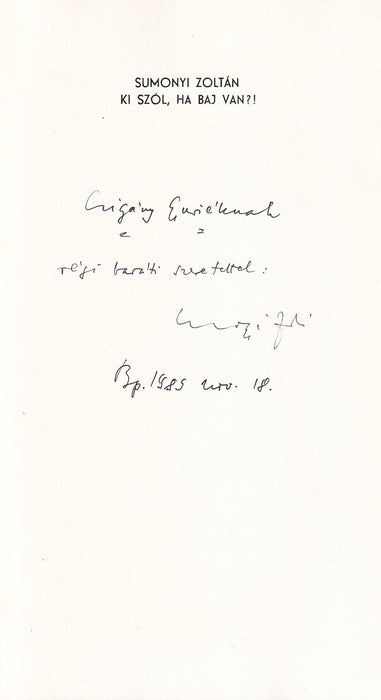 SUMONYI ZOLTÁN
KI SZÓL, HA BAJ VAN?!
Czigány Gyuriéknak
régi baráti szeretettel:
Bp. 1989 nov. 18.